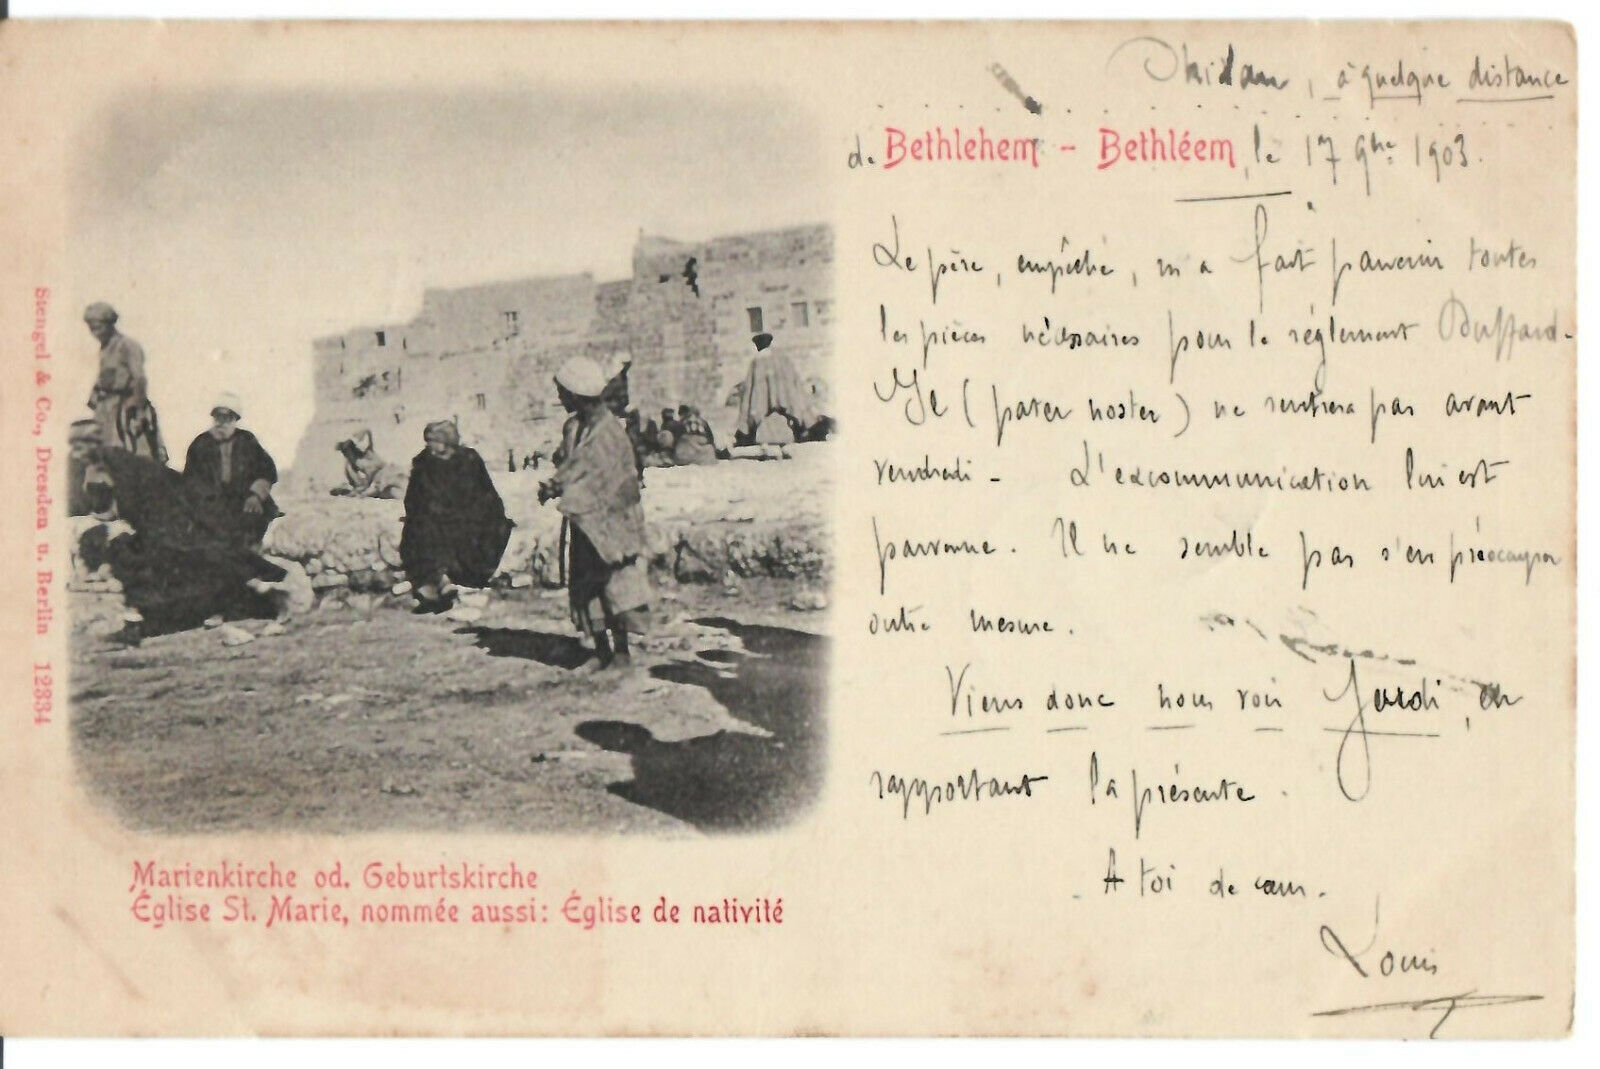 , à quelque distance
de Bethlehem - Bethléem, le 17 9bre 1903.
Le père, empêché, m'a fait parvenir toutes
les pièces nécessaires pour le réglement
Il (pater noster) ne rentrera pas avant
vendredi - L'excommunication lui est
parvenue. Il ne semble pas s'en préoccuper
outre mesure.
Viens donc nous voir Jeudi, en
rapportant la présente.
A toi de cœur.
Louis
Marienkirche od. Geburtskirche
Église St. Marie, nommée aussi: Église de nativité
Stengel & Co., Dresden u. Berlin 12334